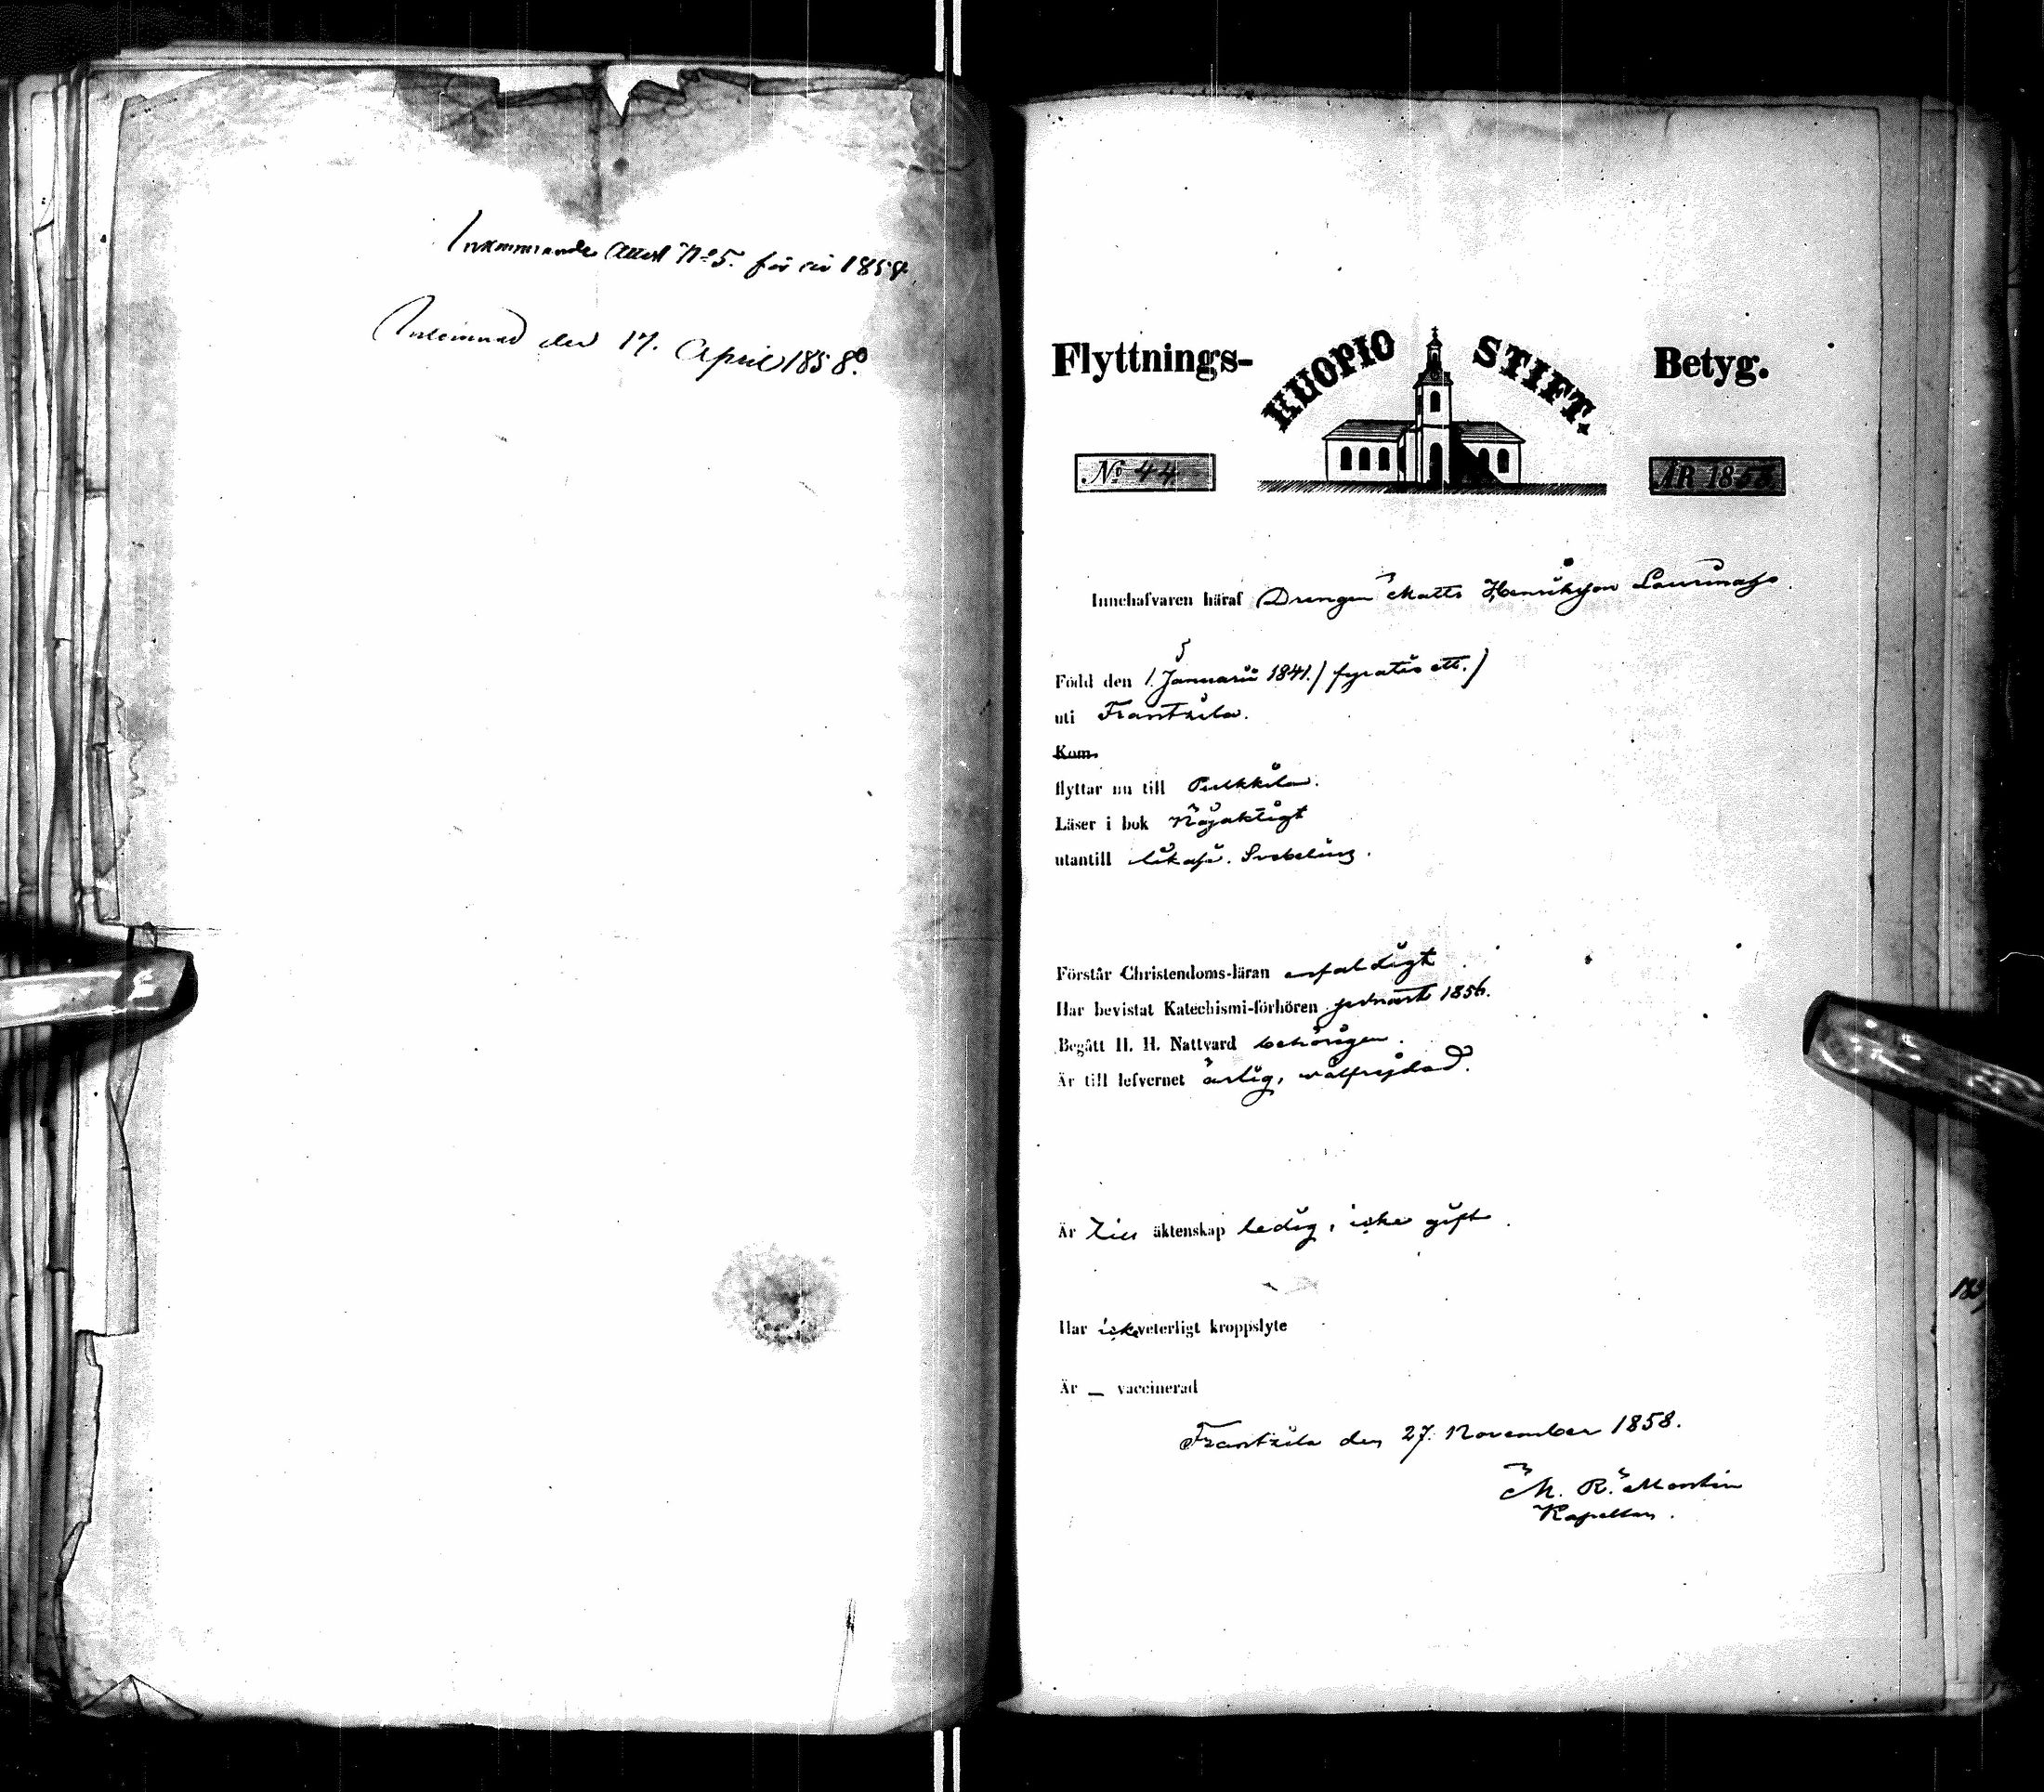 Inkommande Attest No 5. för år 1858.
Inlemnad den 17. April 1858.
Flyttnings- KUOPIO STIFT. Betyg.
No 44
ÅR 1858
Innehafvaren häraf Drengen Matts Henriksson
Född den 1. Januarii 1841. / fyratio ett. /
uti Frantzila.
Kom
flyttar nu till Pulkkila.
Läser i bok Nöjaktigt
utantill likaså. Svebelius.
Förstår Christendoms-läran enfaldigt
Har bevistat Katechismi-förhören sednast 1856.
Begått H. H. Nattvard behörigen.
Är till lefvernet ärlig, välfrejdad.
Är till äktenskap ledig, icke gift.
Har icke veterligt kroppslyte
Är — vaccinerad
Frantzila den 27. November 1858.
M. R. Montin
Kapellan.
185